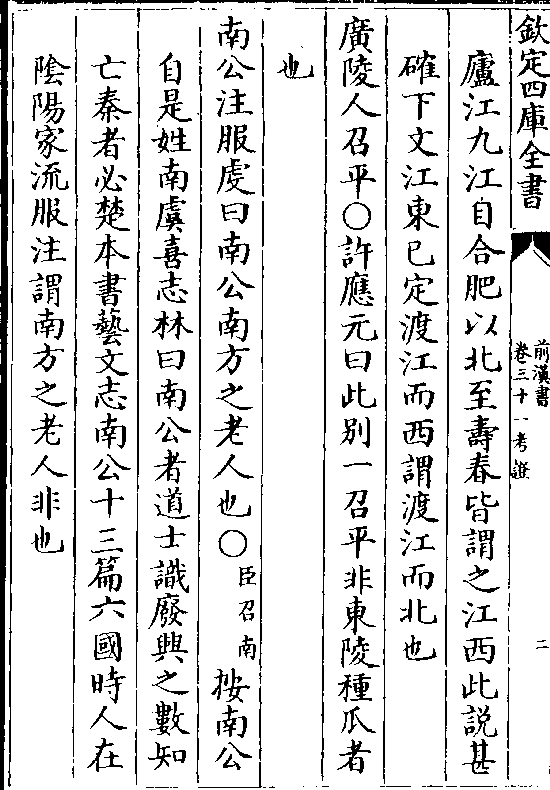 欽定四庫全書
前漢書
卷三十一考證
二
廬江九江自合肥以北至壽春皆謂之江西此說甚
確下文江東已定渡江而西謂渡江而北也
廣陵人召平○許應元曰此別一召平非東陵種瓜者
也
南公注服虔曰南公南方之老人也○臣召南按南公
自是姓南虞喜志林曰南公者道士識廢興之數知
亡秦者必楚本書藝文志南公十三篇六國時人在
陰陽家流服注謂南方之老人非也